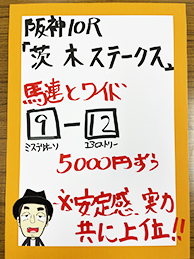 阪神10R
「茨木ステークス」
馬連とワイド
9-12
ミステリオーソ エコロストリーム
5000円ずつ
※安定感、実力
共に上位!!